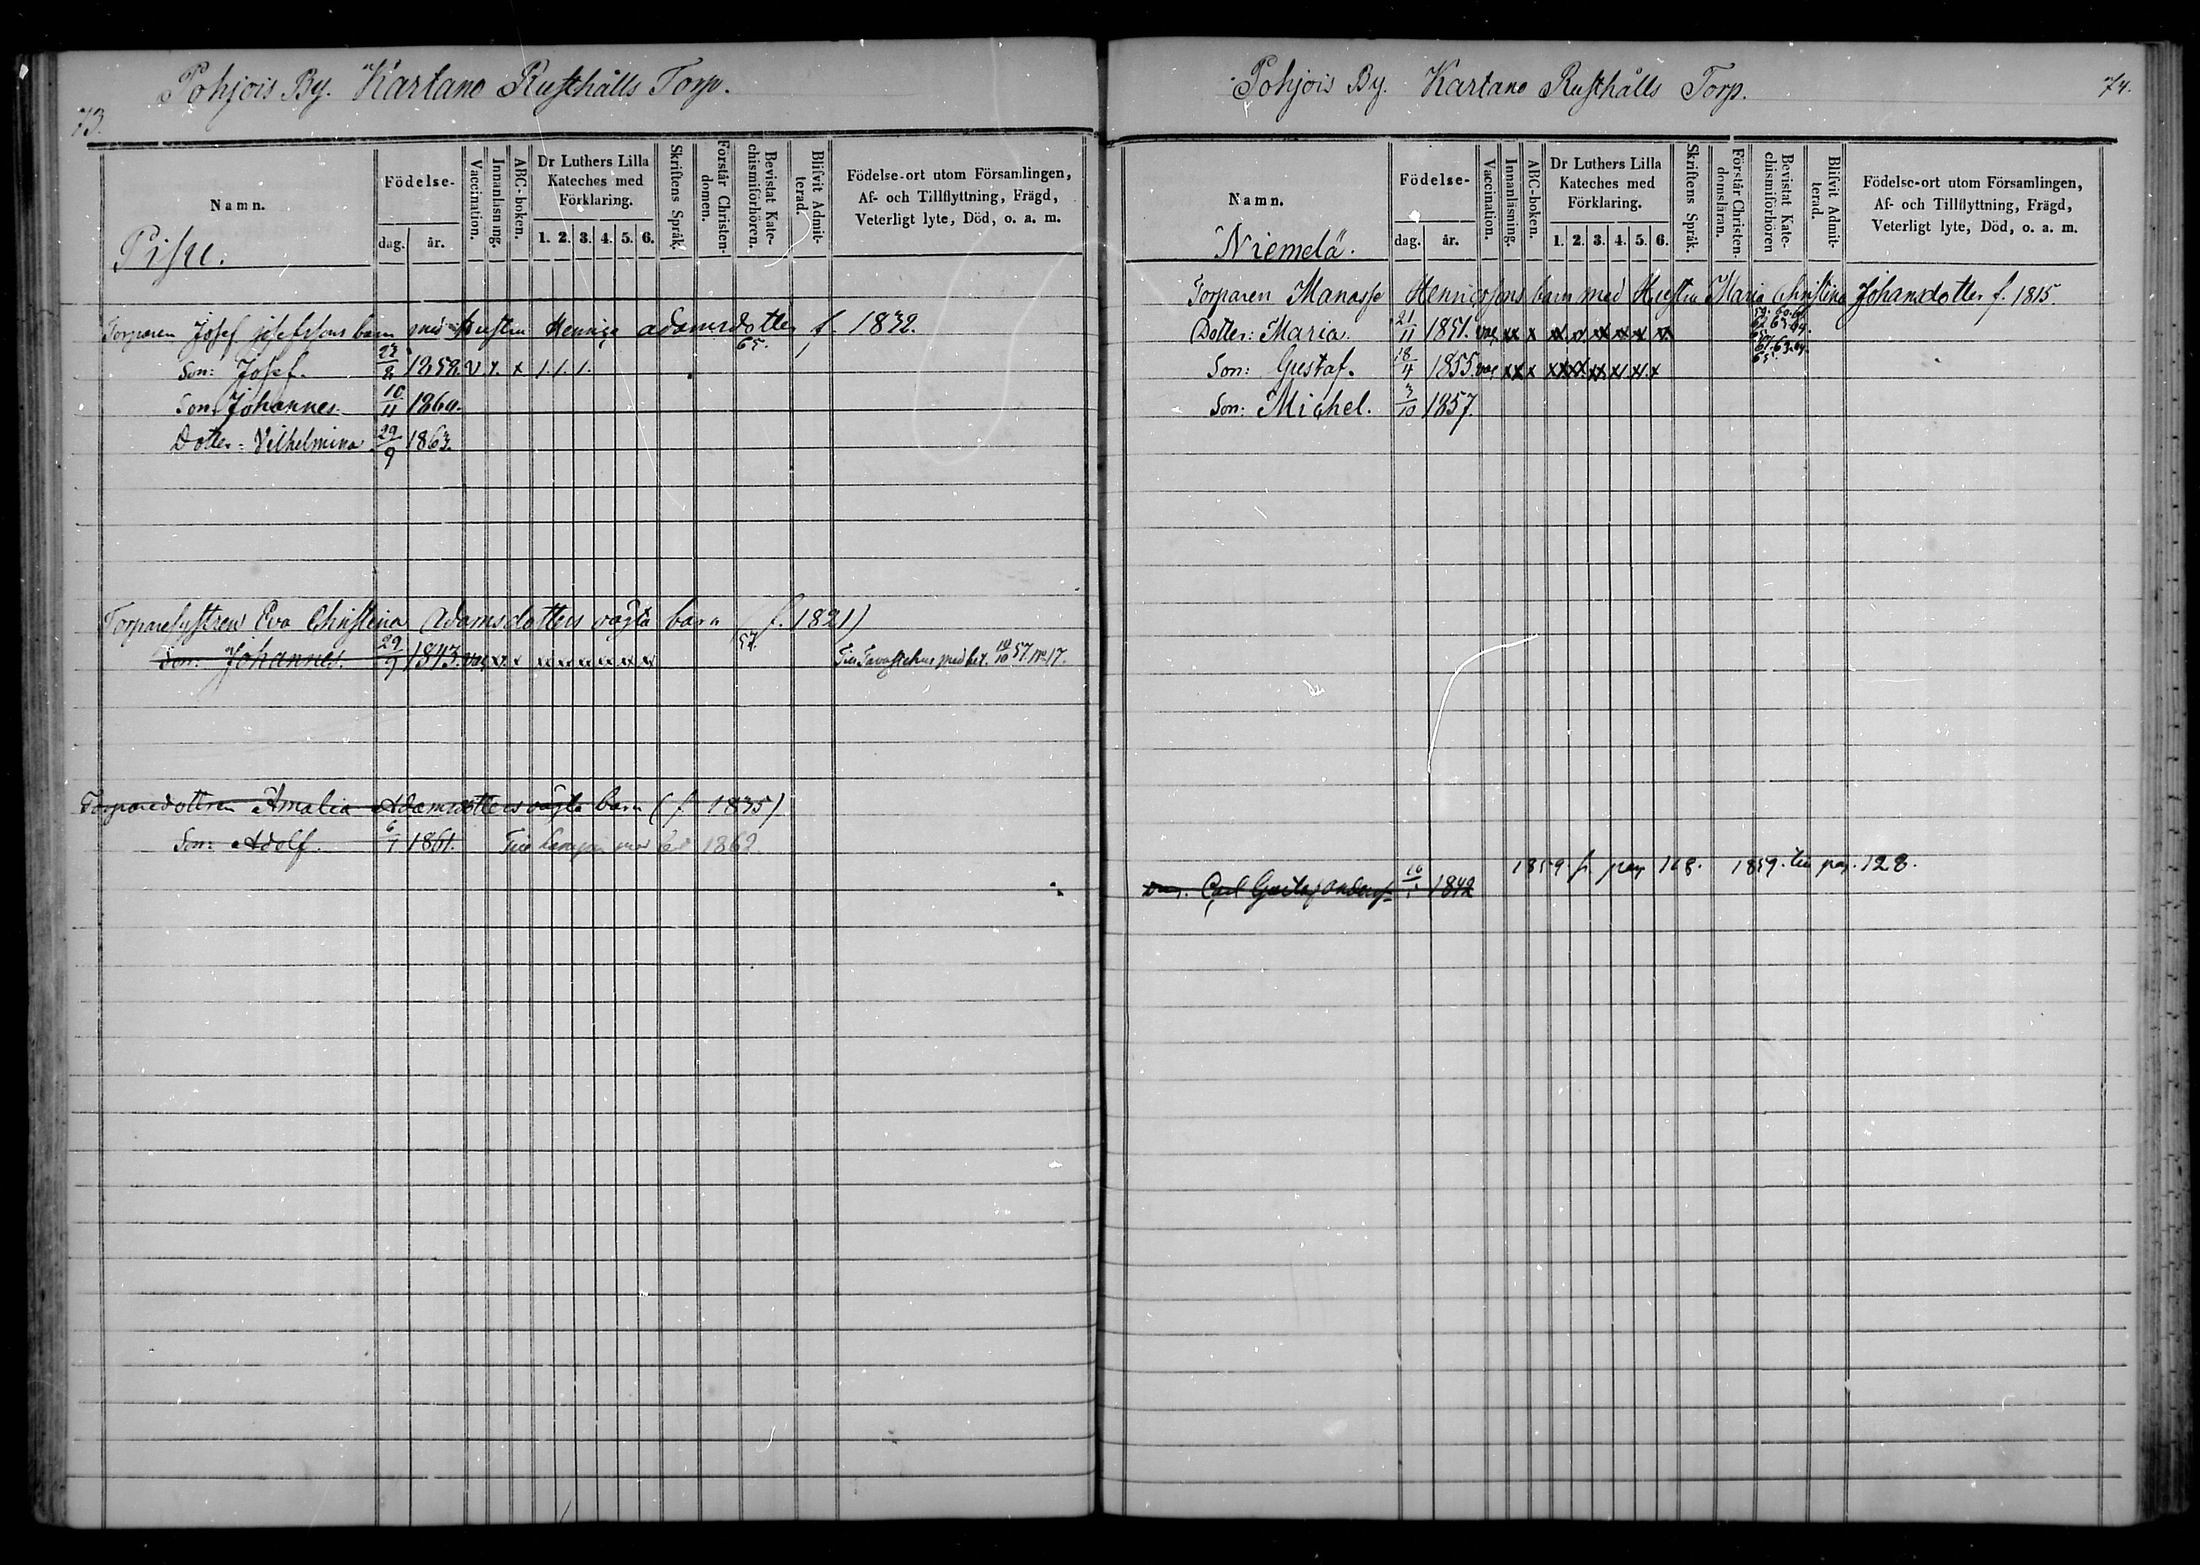 73.
Pohjois By. Kartano Rusthålls Torp.
Namn.
Födelse-
dag. år.
Vaccination.
Innanläsning.
ABC-boken.
Dr Luthers Lilla Kateches med Förklaring.
1. 2. 3. 4. 5. 6.
Skriftens Språk.
Förstår Christen-domen.
Bevistat Kate-chismiförhören.
Blifvit Admit-terad.
Födelse-ort utom Församlingen,
Af- och Tillflyttning, Frägd,
Veterligt lyte, Död, o. a. m.
Torparen Josef Josefssons barn med Hustru Adamsdotter f. 1832.
Son: Josef. 1859. v x. x 1. 1. 1. 65.
Son: Johannes. 1860.
Dotter: Vilhelmina 29/9 1863.
Torparehustrun Eva Christina Adamsdotters oägta barn (f. 1821)
Son: Johannes. 29/9 1843. vac x x x x x x x x 57. Till Tavastehus med bet. 10/10 57. No 17.
Torparedottren Amalia Adamsdotters oägta barn (f. 1835)
Son: Adolf. 1861. Till 1862
Pohjois By. Kartano Rusthålls Torp.
74.
Namn.
Niemelä.
Födelse-
dag. år.
Vaccination.
Innanläsning.
ABC-boken.
Dr Luthers Lilla Kateches med Förklaring.
1. 2. 3. 4. 5. 6.
Skriftens Språk.
Förstår Christen-domsläran.
Bevistat Kate-chismiförhören
Blifvit Admit-terad.
Födelse-ort utom Församlingen,
Af- och Tillflyttning, Frägd,
Veterligt lyte, Död, o. a. m.
Torparen Manasse Henricssons barn med Hustru Maria Christina Johansdotter f. 1815
Dotter: Maria. 21/11 1851. vac xx x xx x xx xx xx x
Son: Gustaf. 18/4 1855. vac xx x xx xx xx xx xx x
Son: Michel. 3/10 1857.
1859 fr. pag 128. 1859. till pag. 128.
Carl Gustaf 1842